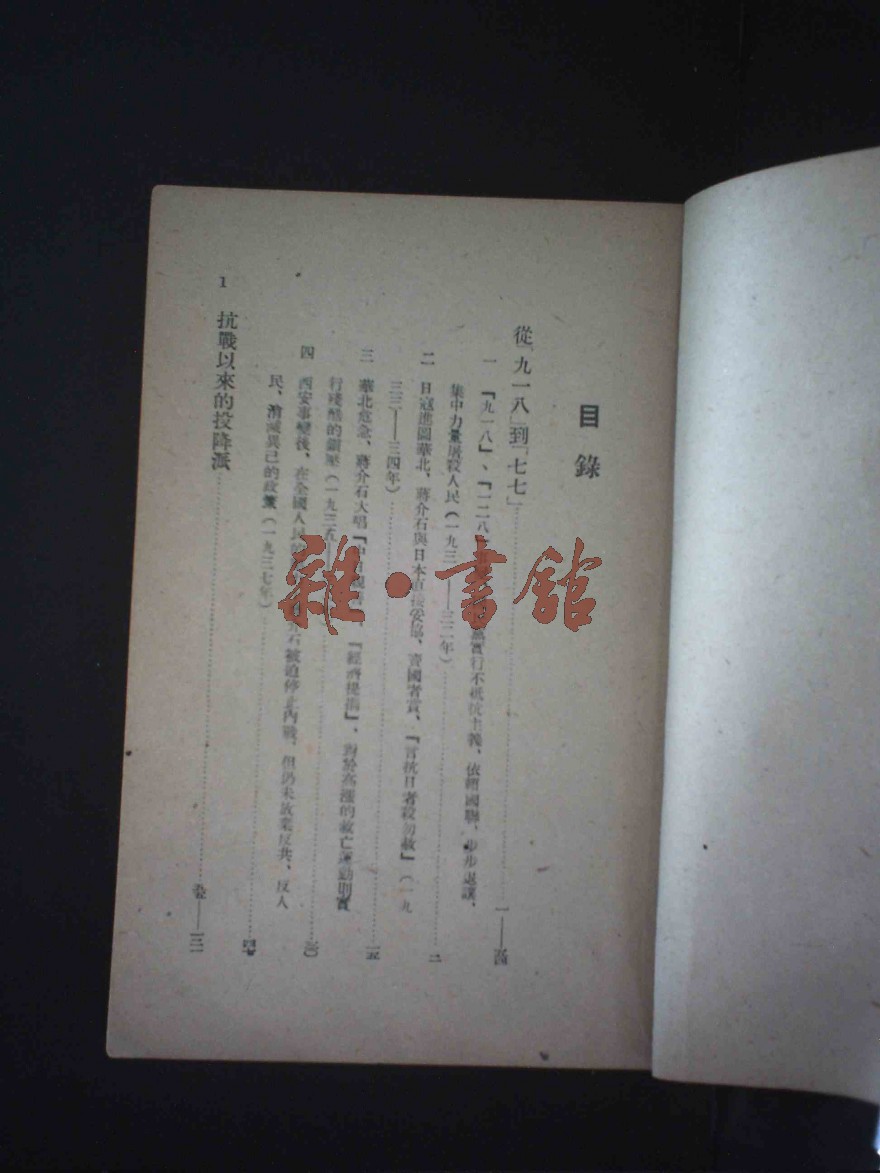 目錄
從「九一八」到「七七」……一——五四
一 「九一八」、「一二八」 實行不抵抗主義、依賴國聯、步步退讓、
集中力量屠殺人民(一九三 ——三二年)……二
二 日寇進圖華北、蔣介石與日本直接妥協、賣國者賞、「言抗日者殺勿赦」(一九
三三——三四年)……一五
三 華北危急、蔣介石大唱「中日 、「經濟提攜」、對於高漲的救亡運動則實
行殘酷的鎮壓(一九三五 ……三〇
四 西安事變後、在全國人民 石被迫停止內戰、但仍未放棄反共、反人
民、消滅異己的政策(一九三七年)……
抗戰以來的投降派…… ——一三一
1
雜·書館